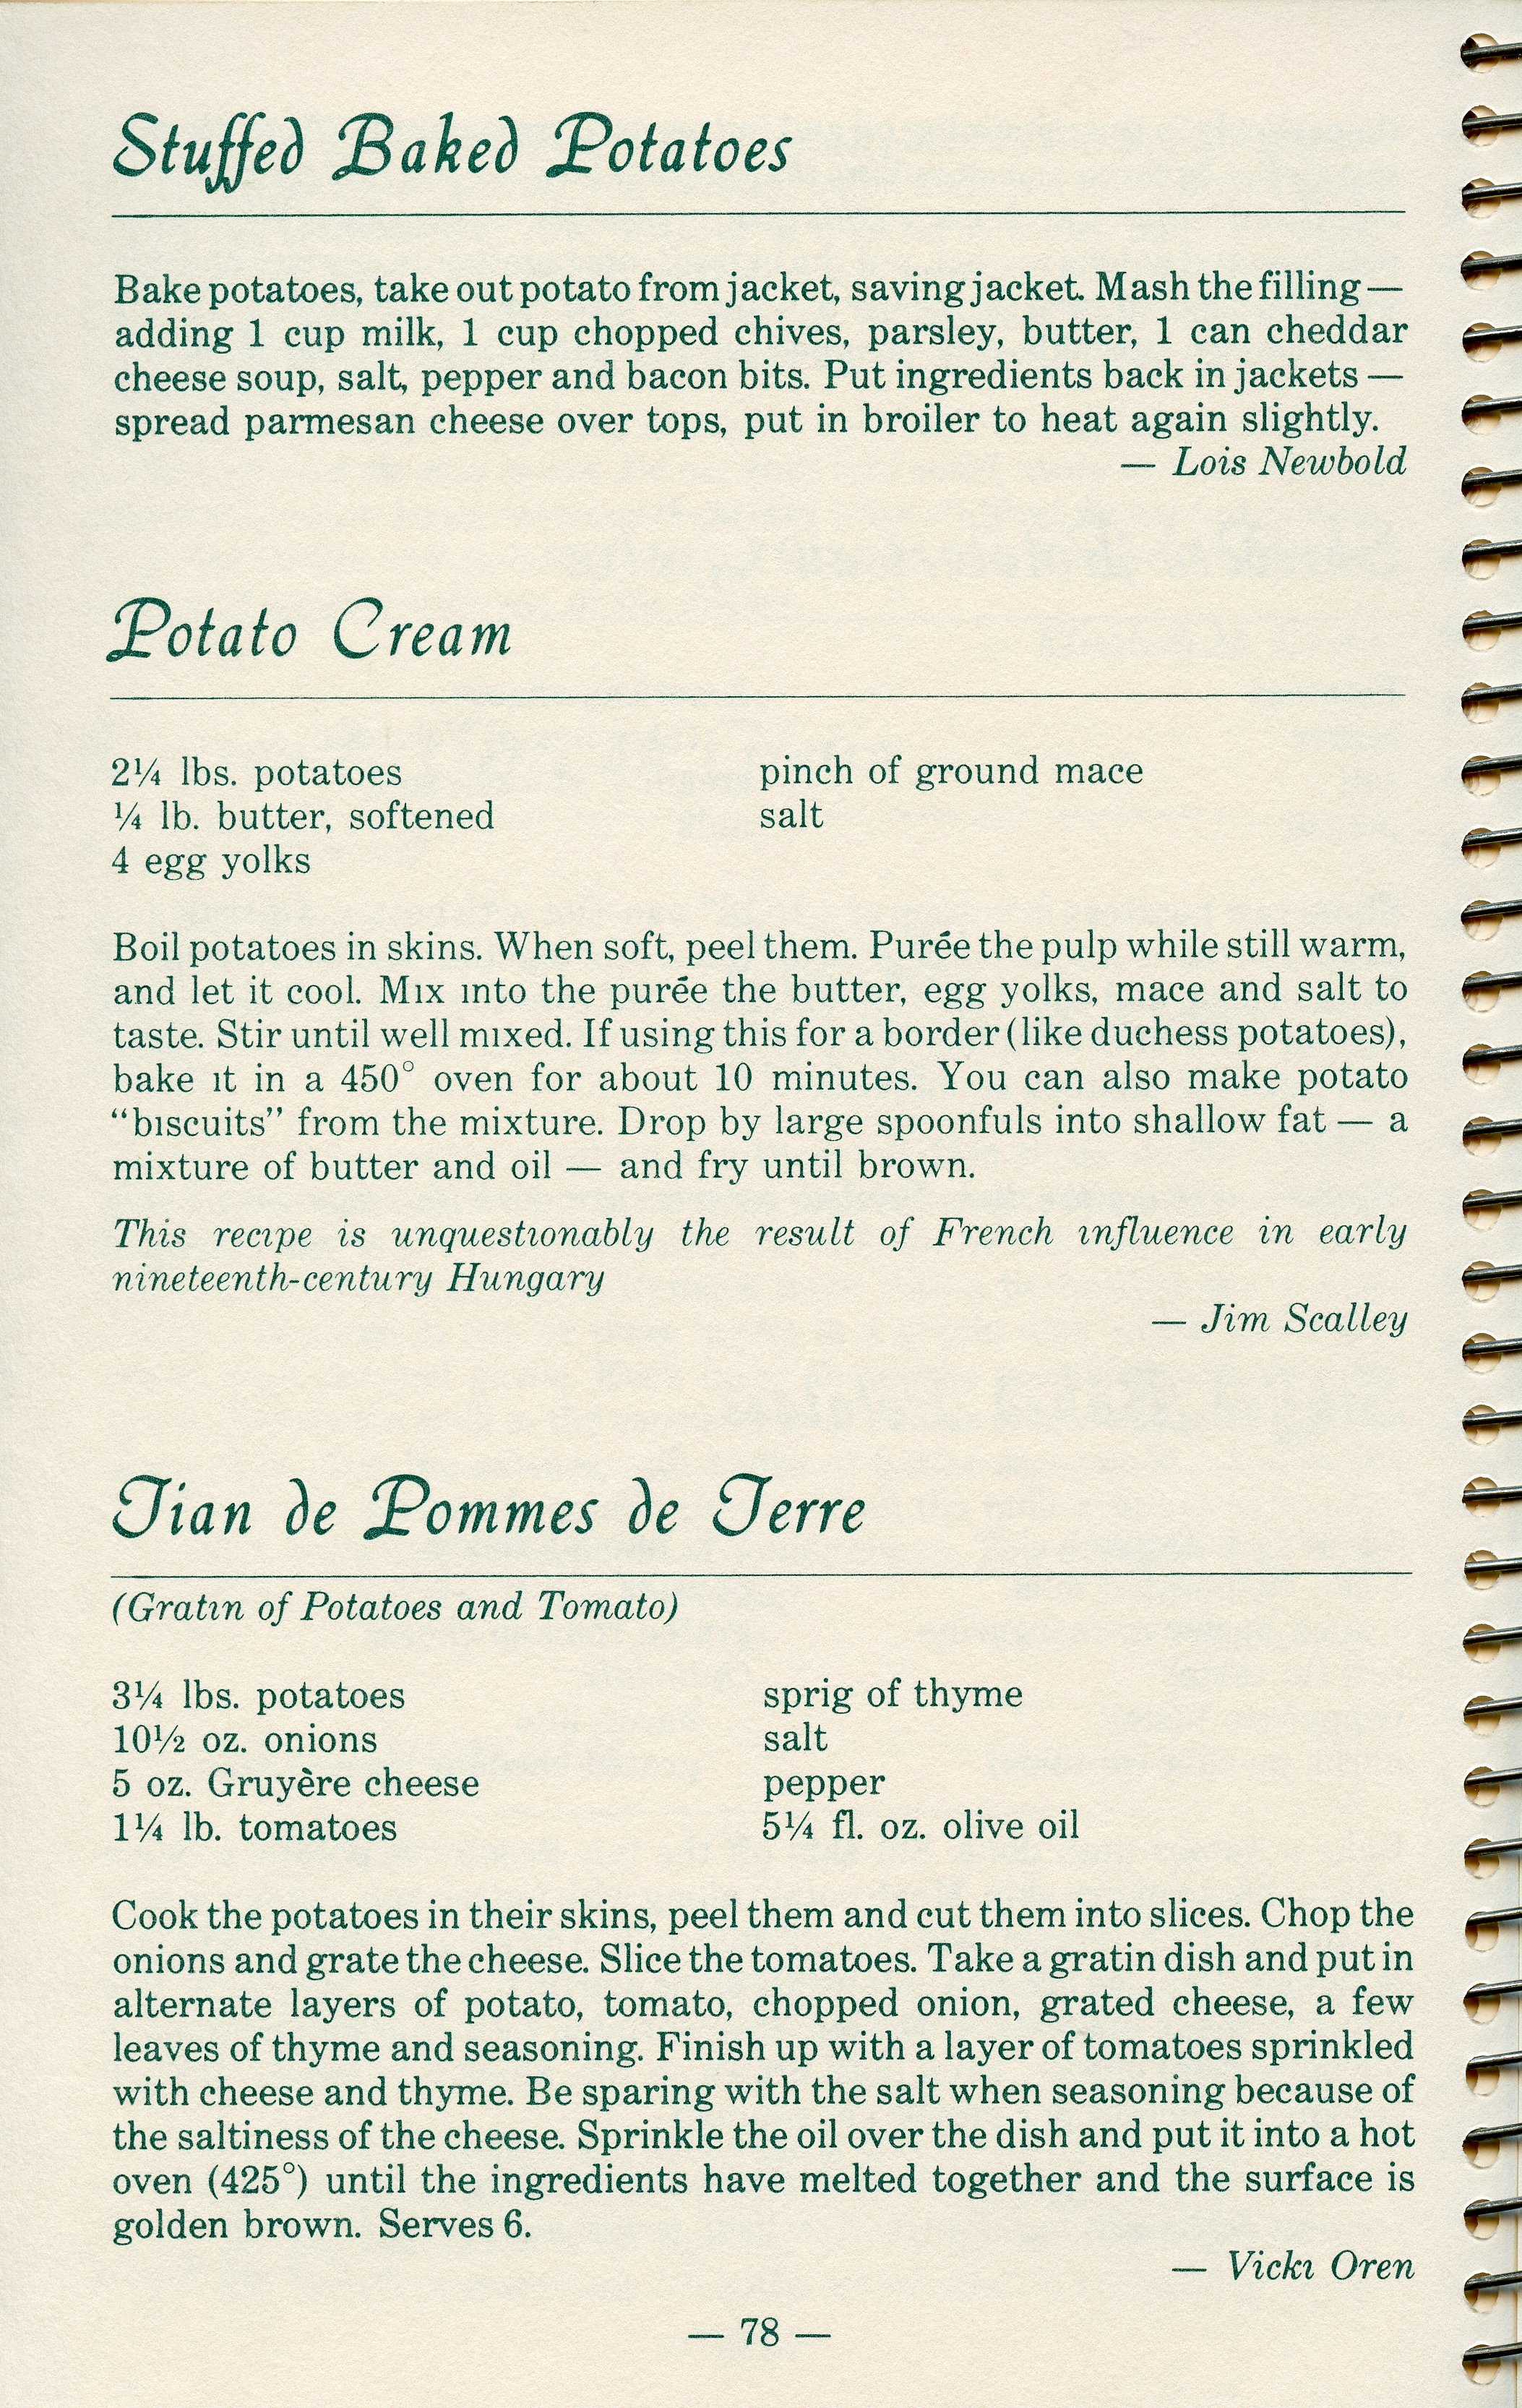 Stuffed Baked Potatoes
Bake potatoes, take out potato from jacket, saving jacket. Mash the filling —
adding 1 cup milk, 1 cup chopped chives, parsley, butter, 1 can cheddar
cheese soup, salt, pepper and bacon bits. Put ingredients back in jackets —
spread parmesan cheese over tops, put in broiler to heat again slightly.
— Lois Newbold
Potato Cream
2¼ lbs. potatoes
¼ lb. butter, softened
4 egg yolks
pinch of ground mace
salt
Boil potatoes in skins. When soft, peel them. Purée the pulp while still warm,
and let it cool. Mix into the purée the butter, egg yolks, mace and salt to
taste. Stir until well mixed. If using this for a border (like duchess potatoes),
bake it in a 450° oven for about 10 minutes. You can also make potato
“biscuits” from the mixture. Drop by large spoonfuls into shallow fat — a
mixture of butter and oil — and fry until brown.
This recipe is unquestionably the result of French influence in early
nineteenth-century Hungary
— Jim Scalley
Tian de Pommes de Terre
(Gratin of Potatoes and Tomato)
3¼ lbs. potatoes
10½ oz. onions
5 oz. Gruyère cheese
1¼ lb. tomatoes
sprig of thyme
salt
pepper
5¼ fl. oz. olive oil
Cook the potatoes in their skins, peel them and cut them into slices. Chop the
onions and grate the cheese. Slice the tomatoes. Take a gratin dish and put in
alternate layers of potato, tomato, chopped onion, grated cheese, a few
leaves of thyme and seasoning. Finish up with a layer of tomatoes sprinkled
with cheese and thyme. Be sparing with the salt when seasoning because of
the saltiness of the cheese. Sprinkle the oil over the dish and put it into a hot
oven (425°) until the ingredients have melted together and the surface is
golden brown. Serves 6.
— Vicki Oren
— 78 —